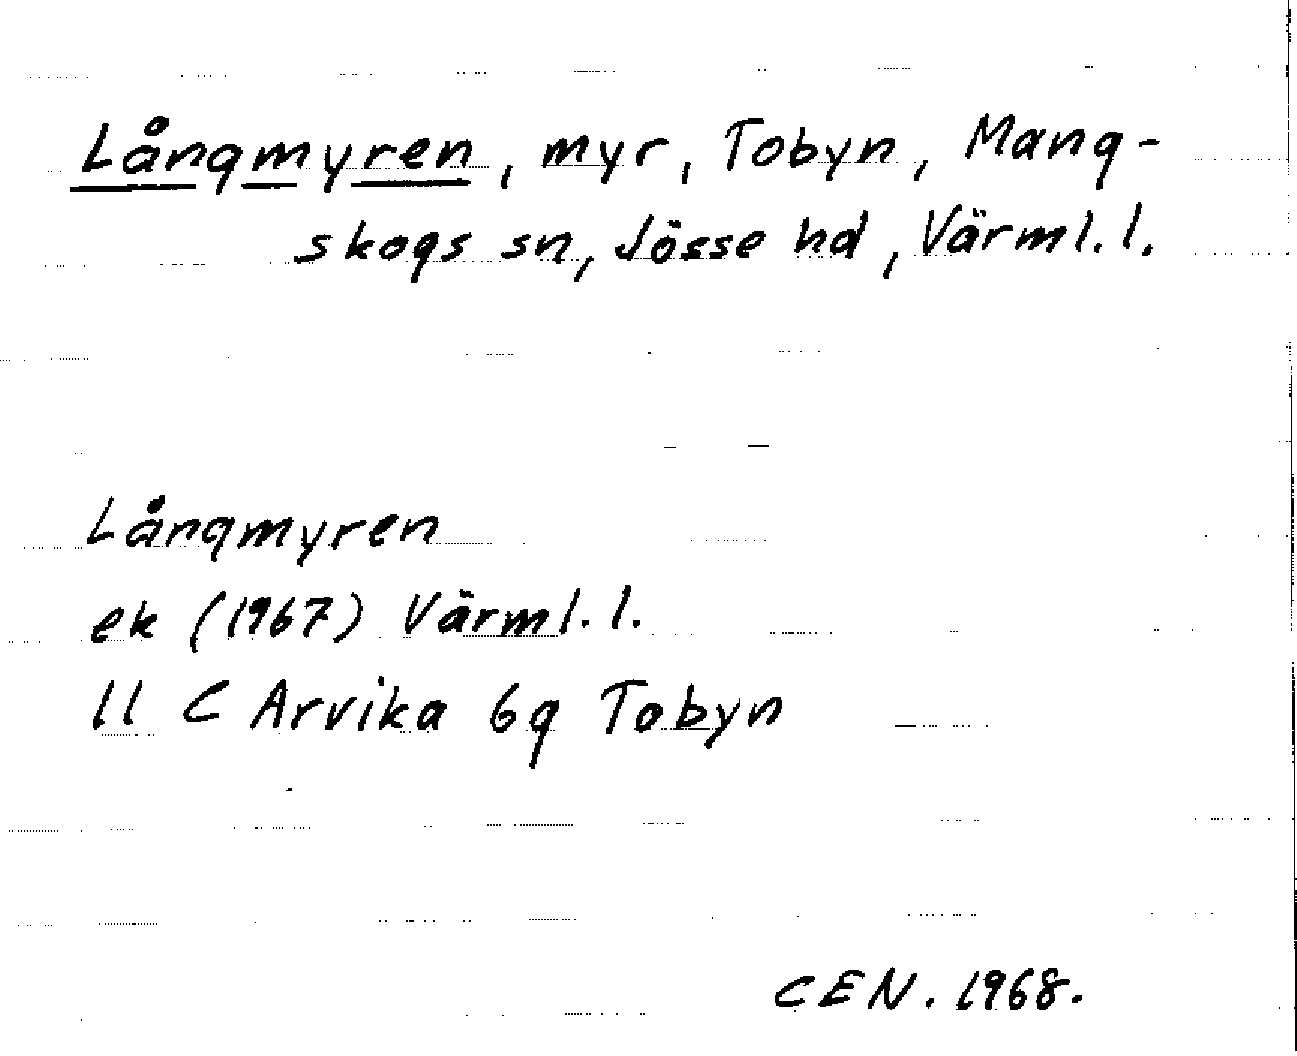 Långmyren, myr, Tobyn, Mang-
skogs sn, Jösse hd, Värml. l.
Långmyren
ek (1967) Värml. l.
11 C Arvika 6g Tobyn
CEN. 1968.